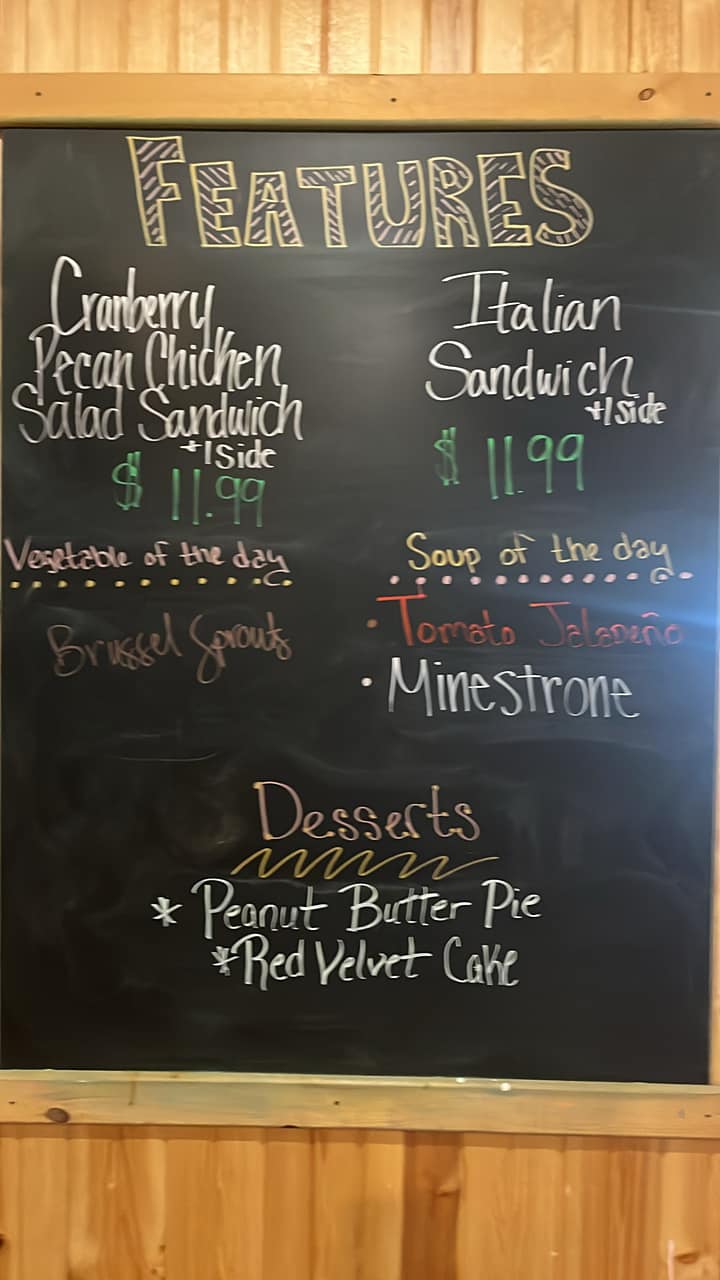 FEATURES
Cranberry
Pecan Chicken
Salad Sandwich
+1 Side
$ 11.99
Italian
Sandwich
+1 Side
$ 11.99
Vegetable of the day
Brussel Sprouts
Soup of the day
• Tomato Jalapeño
• Minestrone
Desserts
* Peanut Butter Pie
* Red Velvet Cake